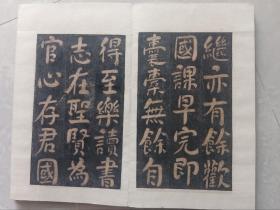 繼亦有餘歡
國課早完即
囊橐無餘自
得至樂讀書
志在聖賢為
官心存君國